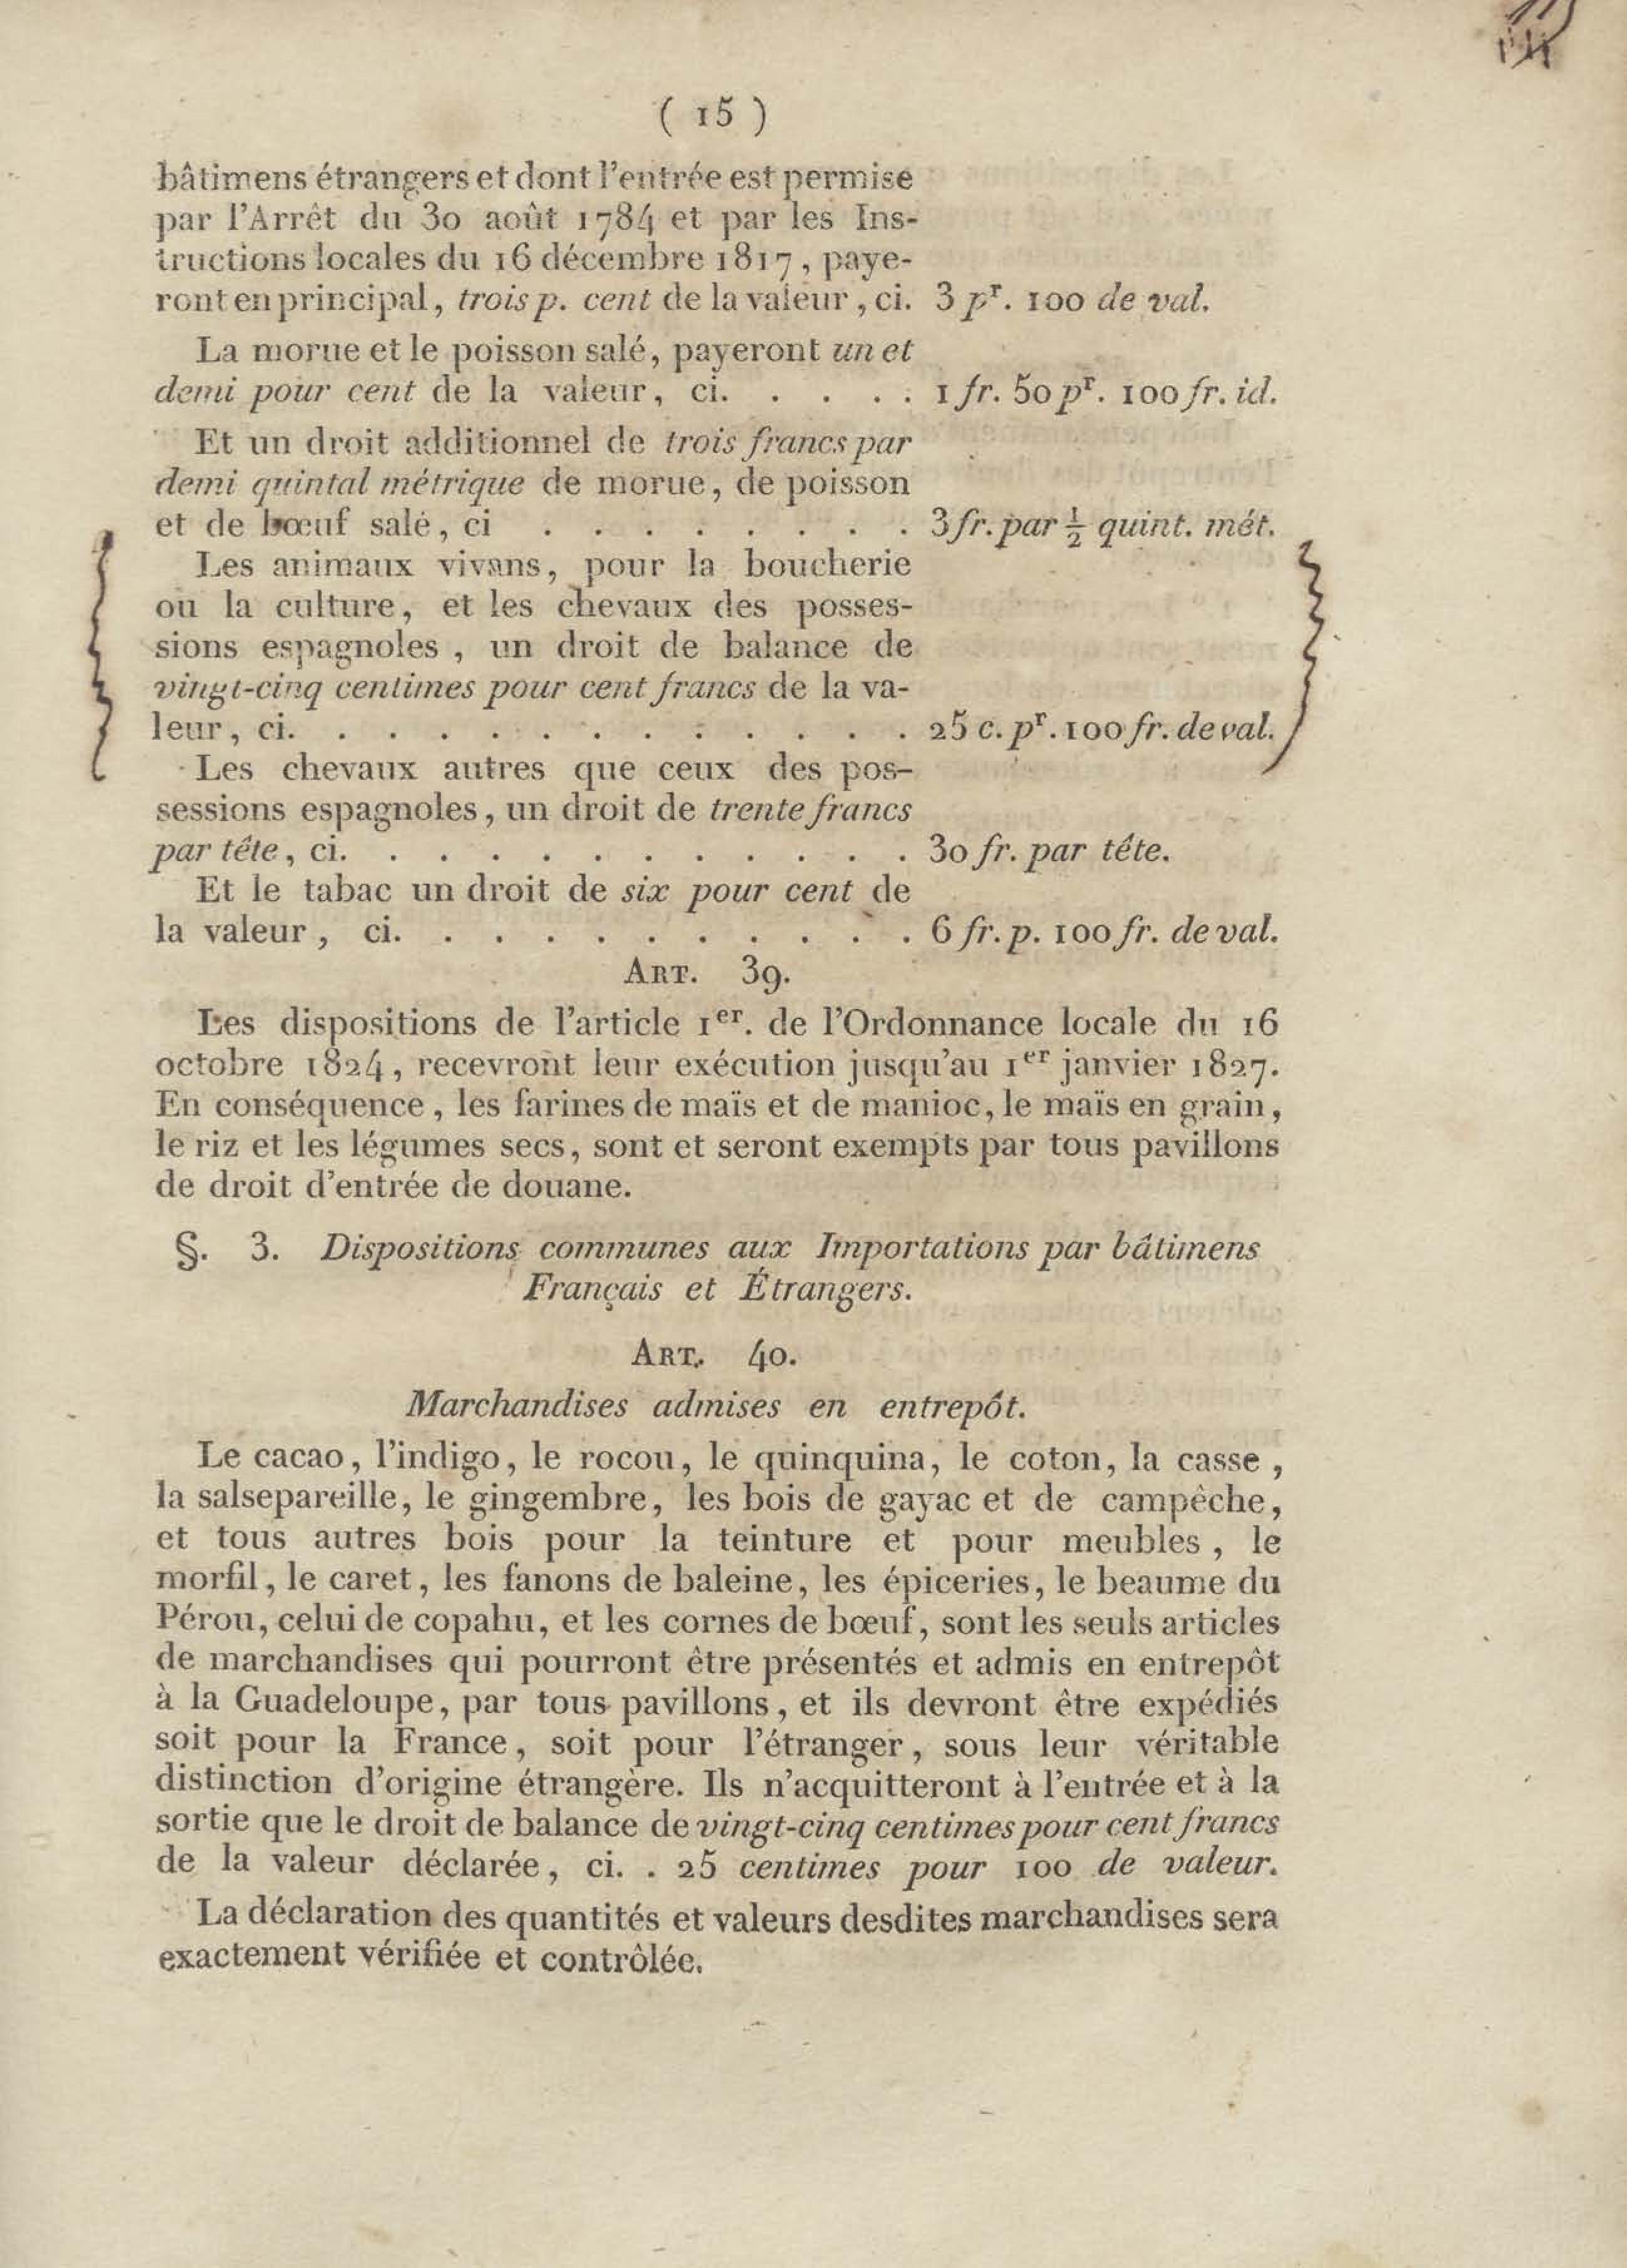 ( 15 )
bâtimens étrangers et dont l'entrée est permise
par l'Arrêt du 30 août 1784 et par les Ins-
tructions locales du 16 décembre 1817, paye-
ront en principal, trois p. cent de la valeur, ci. 3 pr. 100 de val.
La morue et le poisson salé, payeront un et
demi pour cent de la valeur, ci. . . . . 1 fr. 50 pr. 100 fr. id.
Et un droit additionnel de trois francs par
demi quintal métrique de morue, de poisson
et de bœuf salé, ci . . . . . . . . 3 fr. par ½ quint. mét.
Les animaux vivans, pour la boucherie
ou la culture, et les chevaux des posses-
sions espagnoles, un droit de balance de
vingt-cinq centimes pour cent francs de la va-
leur, ci. . . . . . . . . . . . . 25 c. pr. 100 fr. de val.
Les chevaux autres que ceux des pos-
sessions espagnoles, un droit de trente francs
par tête, ci. . . . . . . . . . . . 30 fr. par tête.
Et le tabac un droit de six pour cent de
la valeur, ci. . . . . . . . . . . 6 fr. p. 100 fr. de val.
ART. 39.
Les dispositions de l'article 1er. de l'Ordonnance locale du 16
octobre 1824, recevront leur exécution jusqu'au 1er janvier 1827.
En conséquence, les farines de maïs et de manioc, le maïs en grain,
le riz et les légumes secs, sont et seront exempts par tous pavillons
de droit d'entrée de douane.
§. 3. Dispositions communes aux Importations par bâtimens
Français et Étrangers.
ART. 40.
Marchandises admises en entrepôt.
Le cacao, l'indigo, le rocou, le quinquina, le coton, la casse,
la salsepareille, le gingembre, les bois de gayac et de campêche,
et tous autres bois pour la teinture et pour meubles, le
morfil, le caret, les fanons de baleine, les épiceries, le beaume du
Pérou, celui de copahu, et les cornes de bœuf, sont les seuls articles
de marchandises qui pourront être présentés et admis en entrepôt
à la Guadeloupe, par tous pavillons, et ils devront être expédiés
soit pour la France, soit pour l'étranger, sous leur véritable
distinction d'origine étrangère. Ils n'acquitteront à l'entrée et à la
sortie que le droit de balance de vingt-cinq centimes pour cent francs
de la valeur déclarée, ci. . 25 centimes pour 100 de valeur.
La déclaration des quantités et valeurs desdites marchandises sera
exactement vérifiée et contrôlée.